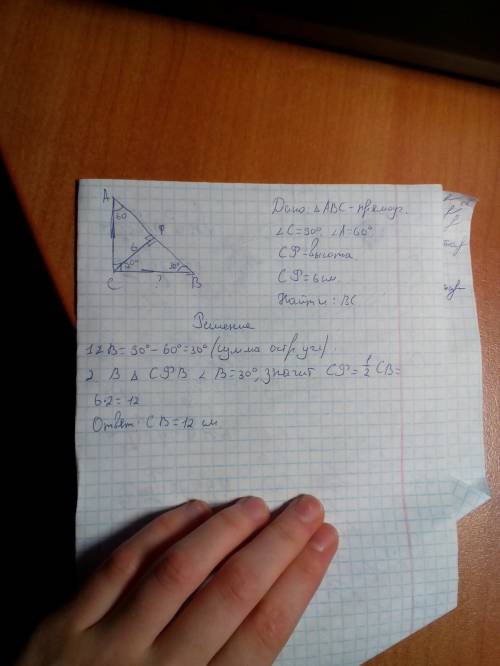 A
60
P
6
60°
30°
C
?
B
Дано: △ABC - прямоуг.
∠C=90°, ∠A=60°
CP-высота
CP=6см
Найти: BC
Решение
1 ∠B=90°-60°=30° (сумма остр. угл)
2 В △ CPB ∠B=30°, значит CP=1/2 CB=
6·2=12
Ответ: CB=12 см